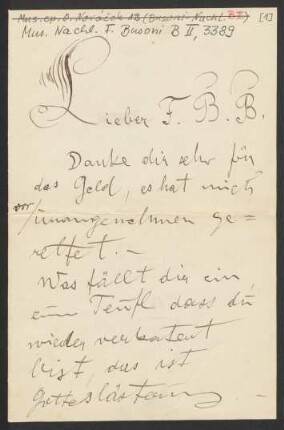 Mus. ep. O. Novácek 13 (Busoni-Nachl. B II) [1]
Mus. Nachl. F. Busoni B II, 3389
Lieber F. B. B.
Danke dir sehr für
das Geld, es hat mich
vor
unangenehmen ge=
rettet. —
Was fällt dir ein
Teufl dass du
wieder
bist, das ist
Gotteslästerung —